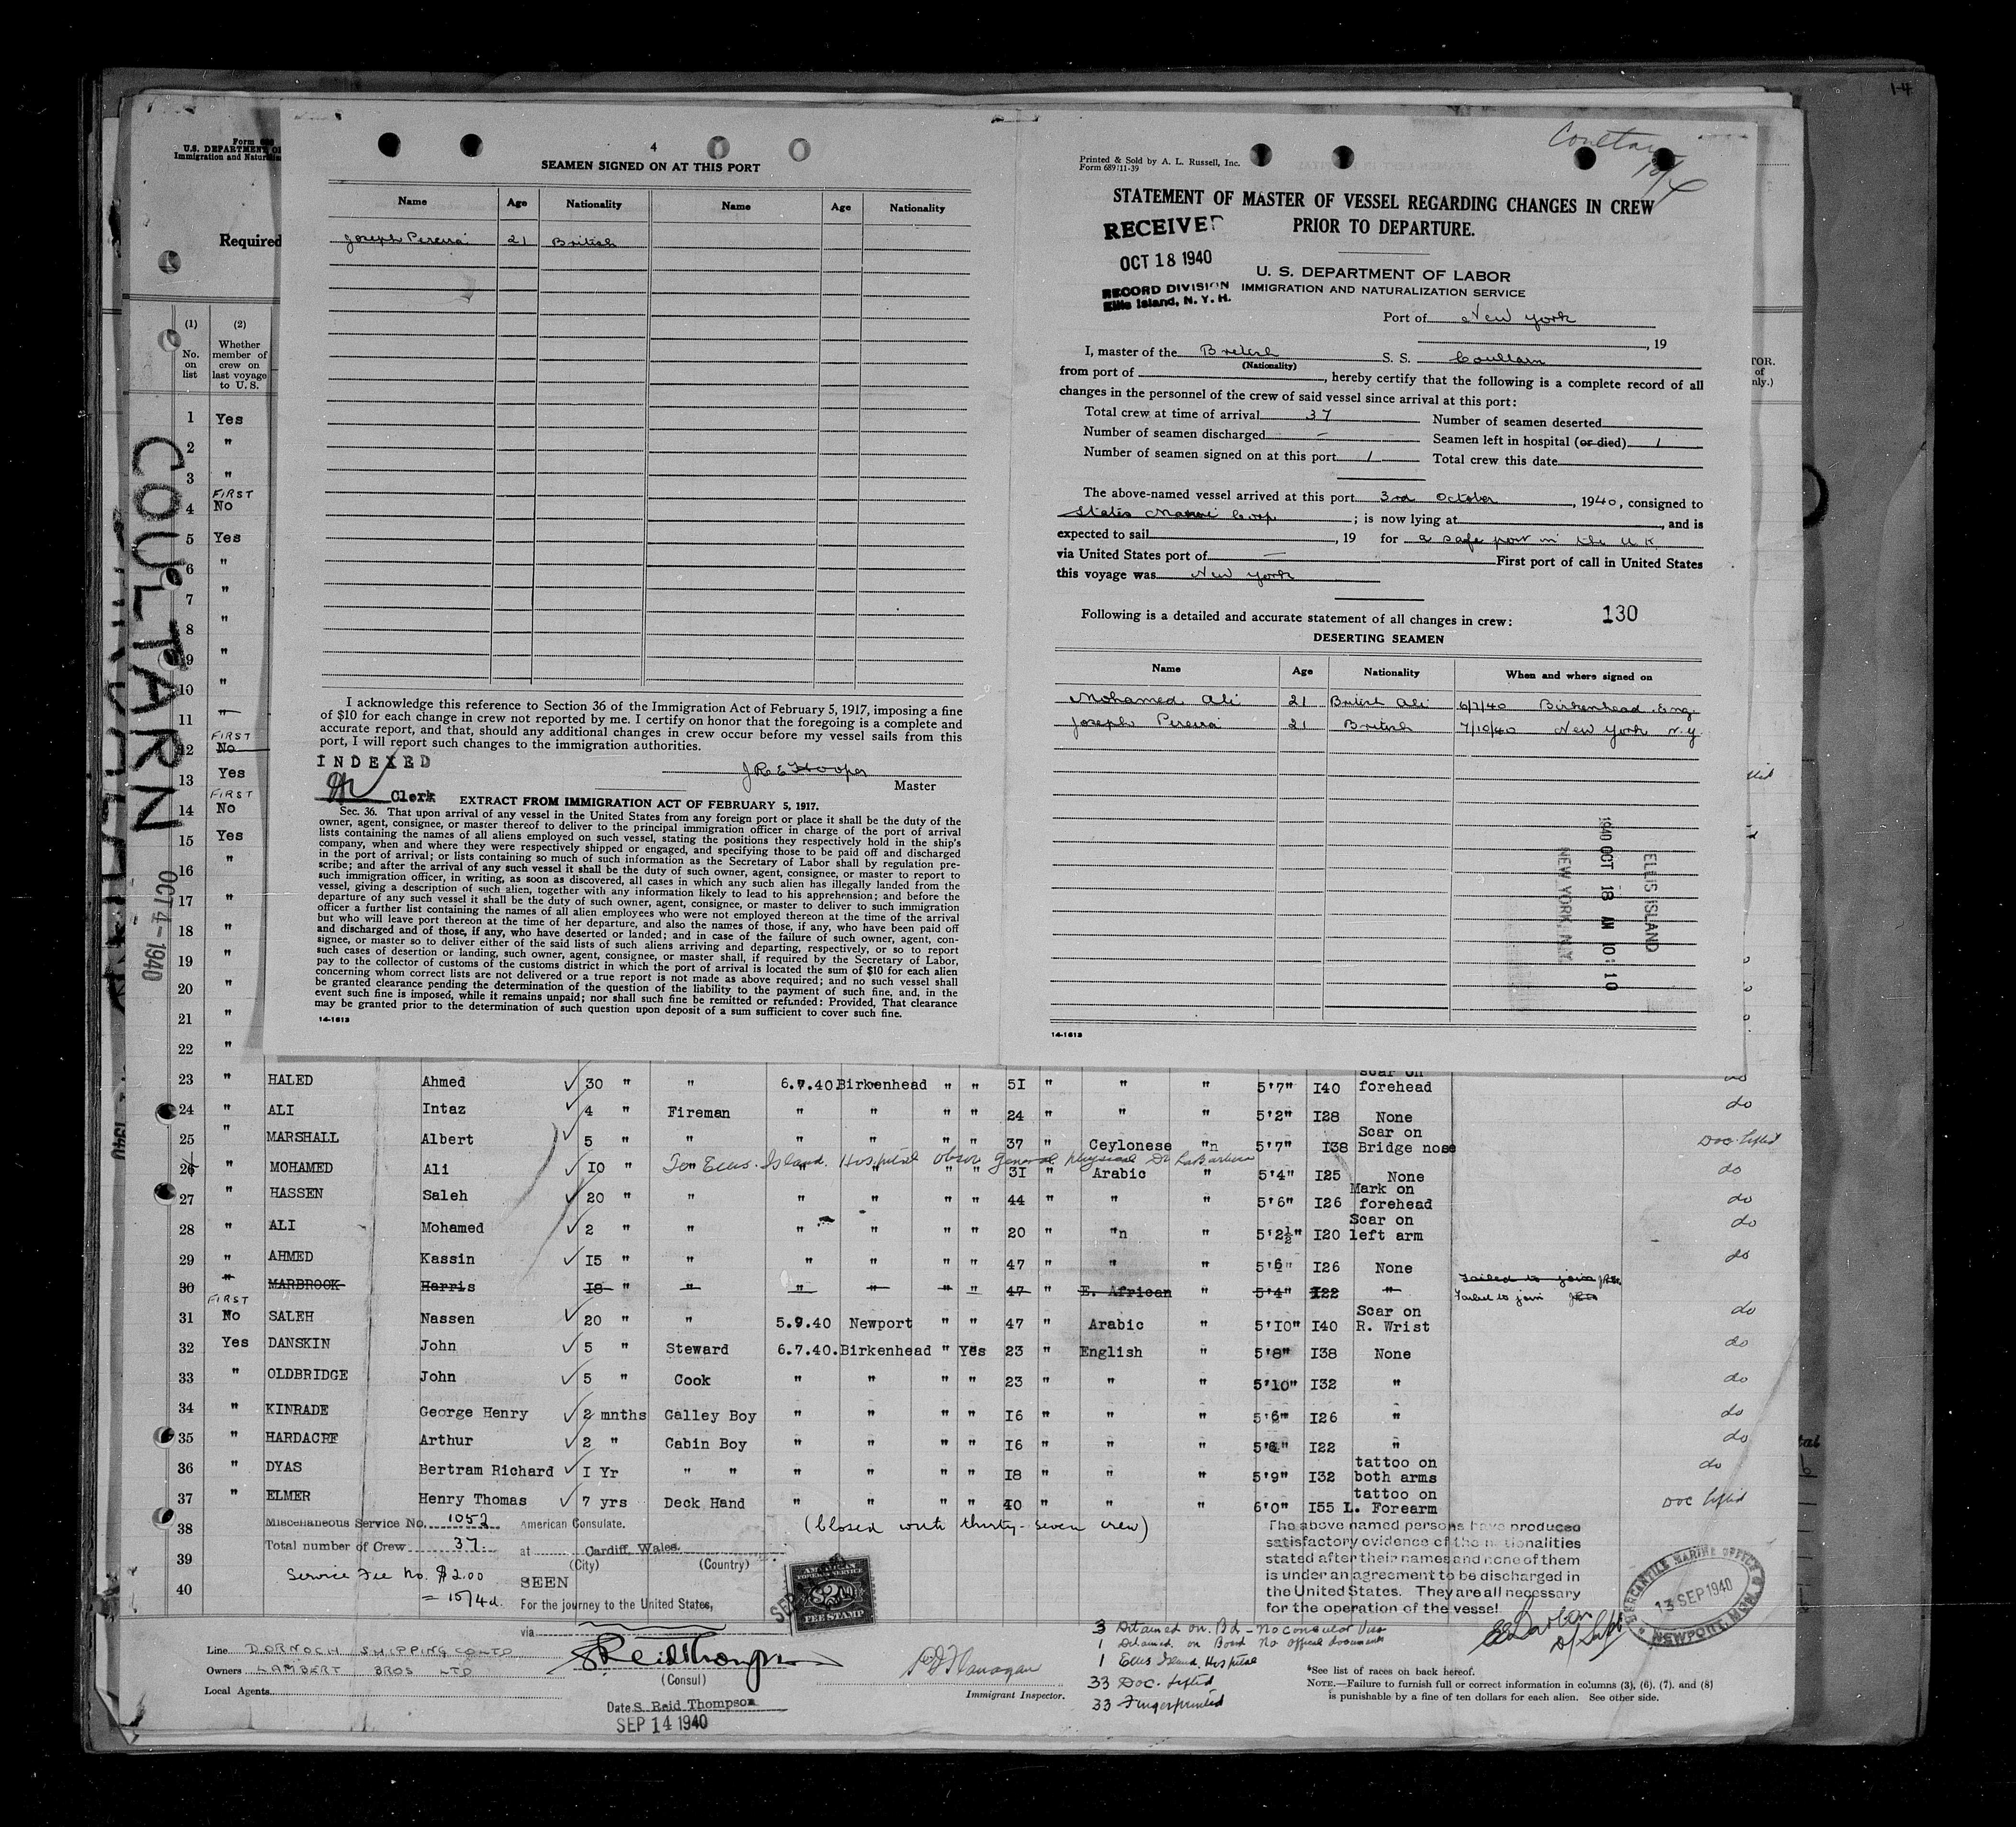 1-4
Form
U.S. DEPARTMENT O
Immigration and Natura
Required
(1)
No.
on
list
(2)
Whether
member of
crew on
last voyage
to U. S.
1 Yes
2 "
3 "
FIRST
4 No
5 Yes
6 "
7 "
8 "
9 "
10 "
11 "
FIRST
12 No
13 Yes
FIRST
14 No
15 Yes
16 "
17 "
18 "
19 "
20 "
21 "
22 "
COULTARN
OCT 4- 1940
4
SEAMEN SIGNED ON AT THIS PORT
Name Age Nationality Name Age Nationality
Joseph Pereira 21 British
I acknowledge this reference to Section 36 of the Immigration Act of February 5, 1917, imposing a fine
of $10 for each change in crew not reported by me. I certify on honor that the foregoing is a complete and
accurate report, and that, should any additional changes in crew occur before my vessel sails from this
port, I will report such changes to the immigration authorities.
INDEXED
J R E Hooper
Master
Clerk
EXTRACT FROM IMMIGRATION ACT OF FEBRUARY 5, 1917.
Sec. 36. That upon arrival of any vessel in the United States from any foreign port or place it shall be the duty of the
owner, agent, consignee, or master thereof to deliver to the principal immigration officer in charge of the port of arrival
lists containing the names of all aliens employed on such vessel, stating the positions they respectively hold in the ship's
company, when and where they were respectively shipped or engaged, and specifying those to be paid off and discharged
in the port of arrival; or lists containing so much of such information as the Secretary of Labor shall by regulation pre-
scribe; and after the arrival of any such vessel it shall be the duty of such owner, agent, consignee, or master to report to
such immigration officer, in writing, as soon as discovered, all cases in which any such alien has illegally landed from the
vessel, giving a description of such alien, together with any information likely to lead to his apprehension; and before the
departure of any such vessel it shall be the duty of such owner, agent, consignee, or master to deliver to such immigration
officer a further list containing the names of all alien employees who were not employed thereon at the time of the arrival
but who will leave port thereon at the time of her departure, and also the names of those, if any, who have been paid off
and discharged and of those, if any, who have deserted or landed; and in case of the failure of such owner, agent, con-
signee, or master so to deliver either of the said lists of such aliens arriving and departing, respectively, or so to report
such cases of desertion or landing, such owner, agent, consignee, or master shall, if required by the Secretary of Labor,
pay to the collector of customs of the customs district in which the port of arrival is located the sum of $10 for each alien
concerning whom correct lists are not delivered or a true report is not made as above required; and no such vessel shall
be granted clearance pending the determination of the question of the liability to the payment of such fine, and, in the
event such fine is imposed, while it remains unpaid; nor shall such fine be remitted or refunded: Provided, That clearance
may be granted prior to the determination of such question upon deposit of a sum sufficient to cover such fine.
14-1613
Printed & Sold by A. L. Russell, Inc.
Form 689:11-39
Coultarn
10/4
STATEMENT OF MASTER OF VESSEL REGARDING CHANGES IN CREW
PRIOR TO DEPARTURE.
RECEIVED
OCT 18 1940
RECORD DIVISION
Ellis Island, N. Y. H.
U. S. DEPARTMENT OF LABOR
IMMIGRATION AND NATURALIZATION SERVICE
Port of New York
, 19
I, master of the British S. S. Coultarn
(Nationality)
from port of , hereby certify that the following is a complete record of all
changes in the personnel of the crew of said vessel since arrival at this port:
Total crew at time of arrival 37 Number of seamen deserted
Number of seamen discharged - Seamen left in hospital (or died) 1
Number of seamen signed on at this port 1 Total crew this date
The above-named vessel arrived at this port 3rd October, 1940, consigned to
States Marine Corp ; is now lying at , and is
expected to sail , 19 for a safe port in the U.K.
via United States port of - First port of call in United States
this voyage was New York
Following is a detailed and accurate statement of all changes in crew: 130
DESERTING SEAMEN
Name Age Nationality When and where signed on
Mohamed Ali 21 British Ali 6/7/40 Birkenhead. Eng.
Joseph Pereira 21 British 7/10/40 New York N.Y.
1940 OCT 18 AM 10:10
ELLIS ISLAND
NEW YORK, N.Y.
14-1613
23 " HALED Ahmed 30 " " 6.7.40.Birkenhead " " 51 " " " 5'7" I40 Scar on forehead do
24 " ALI Intaz 4 " Fireman " " " " 24 " " " 5'2" I28 None do
25 " MARSHALL Albert 5 " " " " " " 37 " Ceylonese "n 5'7" I38 Scar on Bridge nose Doc. lifted
To Ellis Island Hospital obser General physical Dr LaBarbera
26 " MOHAMED Ali IO " " " " " " 3I " Arabic " 5'4" I25 None do
27 " HASSEN Saleh 20 " " " " " " 44 " " " 5'6" I26 Mark on forehead do
28 " ALI Mohamed 2 " " " " " " 20 " "n " 5'2½" I20 Scar on left arm do
29 " AHMED Kassin I5 " " " " " " 47 " " " 5'6" I26 None do
30 " MARBROOK Harris I8 " " " " " " 47 " E. African " 5'4" I22 " Failed to join
Failed to join
FIRST
31 No SALEH Nassen 20 " " 5.9.40 Newport " " 47 " Arabic " 5'IO" I40 Scar on R. Wrist do
32 Yes DANSKIN John 5 " Steward 6.7.40.Birkenhead " Yes 23 " English " 5'8" I38 None do
33 " OLDBRIDGE John 5 " Cook " " " " 23 " " " 5'10" I32 " do
34 " KINRADE George Henry 2 mnths Galley Boy " " " " I6 " " " 5'6" I26 " do
35 " HARDACRE Arthur 2 " Cabin Boy " " " " I6 " " " 5'6" I22 " do
36 " DYAS Bertram Richard I Yr " " " " " " I8 " " " 5'9" I32 tattoo on both arms do
37 " ELMER Henry Thomas 7 yrs Deck Hand " " " " 40 " " " 6'0" I55 tattoo on L. Forearm Doc lifted
38
39
40
Miscellaneous Service No. 1052 American Consulate.
(Closed with thirty-seven crew)
Total number of Crew 37. at Cardiff, Wales.
(City) (Country)
Service Fee No. $2.00
= 10/4d.
SEEN
For the journey to the United States,
via
AMERICAN
FOREIGN SERVICE
$2.00
FEE STAMP
The above named persons have produced
satisfactory evidence of the nationalities
stated after their names and none of them
is under an agreement to be discharged in
the United States. They are all necessary
for the operation of the vessel
MERCANTILE MARINE OFFICE
13 SEP 1940
NEWPORT, MON
Line DORNOCH SHIPPING CO LTD
Owners LAMBERT BROS LTD
Local Agents
S Reid Thompson
(Consul)
Date S. Reid Thompson
SEP 14 1940
Flanagan
Immigrant Inspector.
3 Detained on Bd - No consular Visa
1 Detained on Board No official documents
1 Ellis Island Hospital
33 Doc. lifted
33 Fingerprinted
*See list of races on back hereof.
NOTE.—Failure to furnish full or correct information in columns (3), (6), (7), and (8)
is punishable by a fine of ten dollars for each alien. See other side.